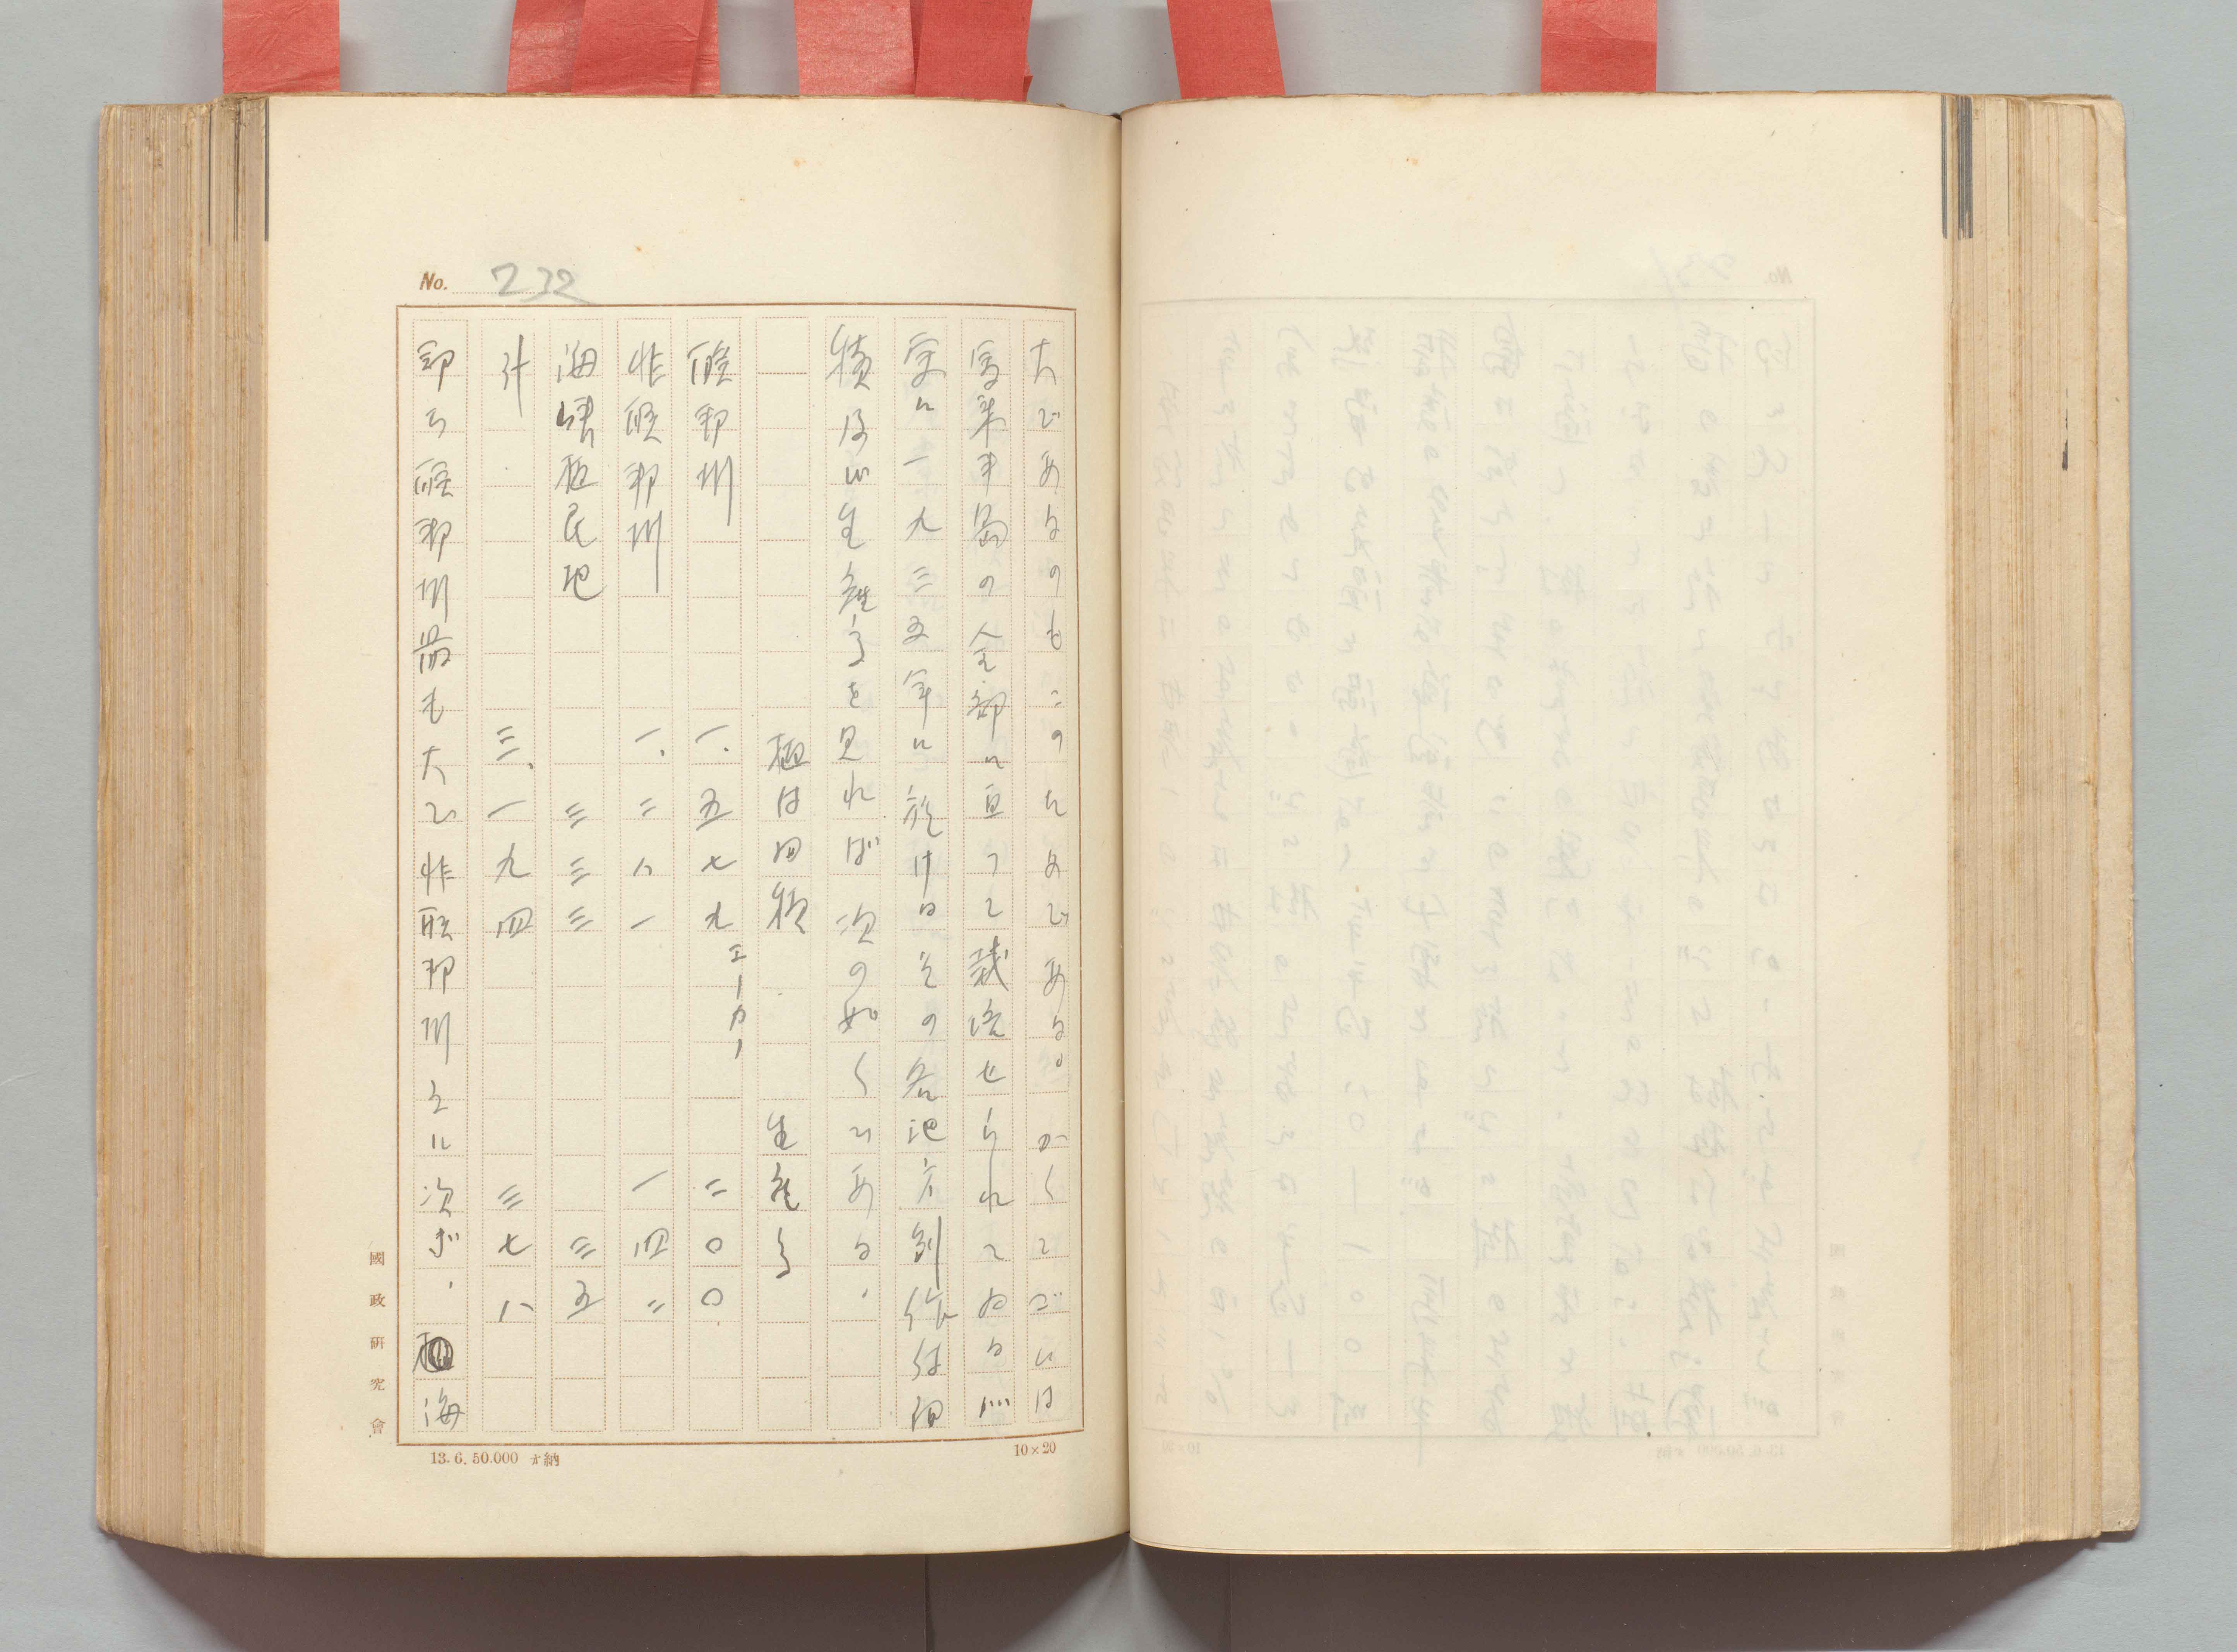 No. 232
大であるのもこのためである。かくてゴムは
馬来半島の全部に亘つて栽培せられてゐるが
実に一九三五年に於ける其の各地方別作付面
積及び生産高を見れば次の如くである、
植付面積 生産高
聯邦州 一.五七九エーカー 二〇〇
非聯邦州 一.二八一 一四二
海峡植民地 三三三 三五
計 三.一九四 三七八
即ち聯邦州最も大で非聯邦州之に次ぎ、海
國政研究會
13.6.50.000 納
10×20